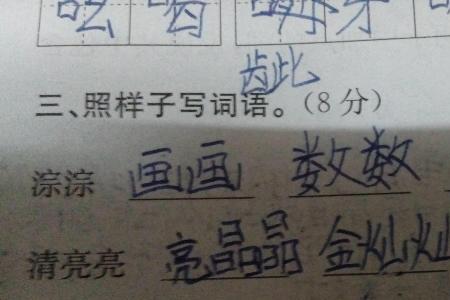 吆喝 牙
齿此
三、照样子写词语。(8分)
淙淙 画画 数数
清亮亮 亮晶晶 金灿灿